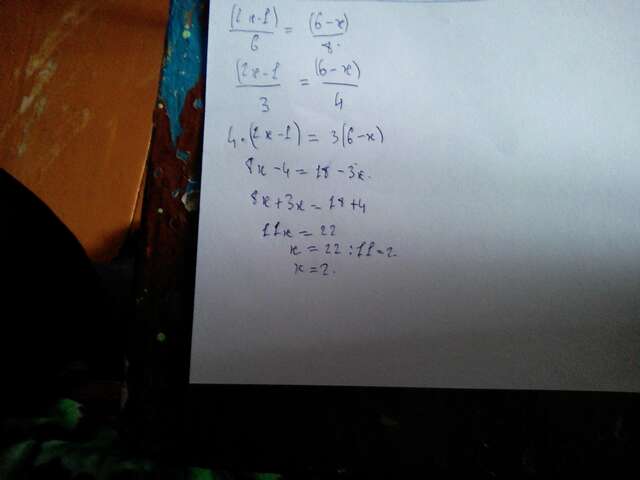 (2x-1)/6 = (6-x)/8.
(2x-1/3 = (6-x)/4
4·(2x-1) = 3(6-x)
8x-4=18-3x.
8x+3x=18+4
11x=22
x=22:11=2.
x=2.